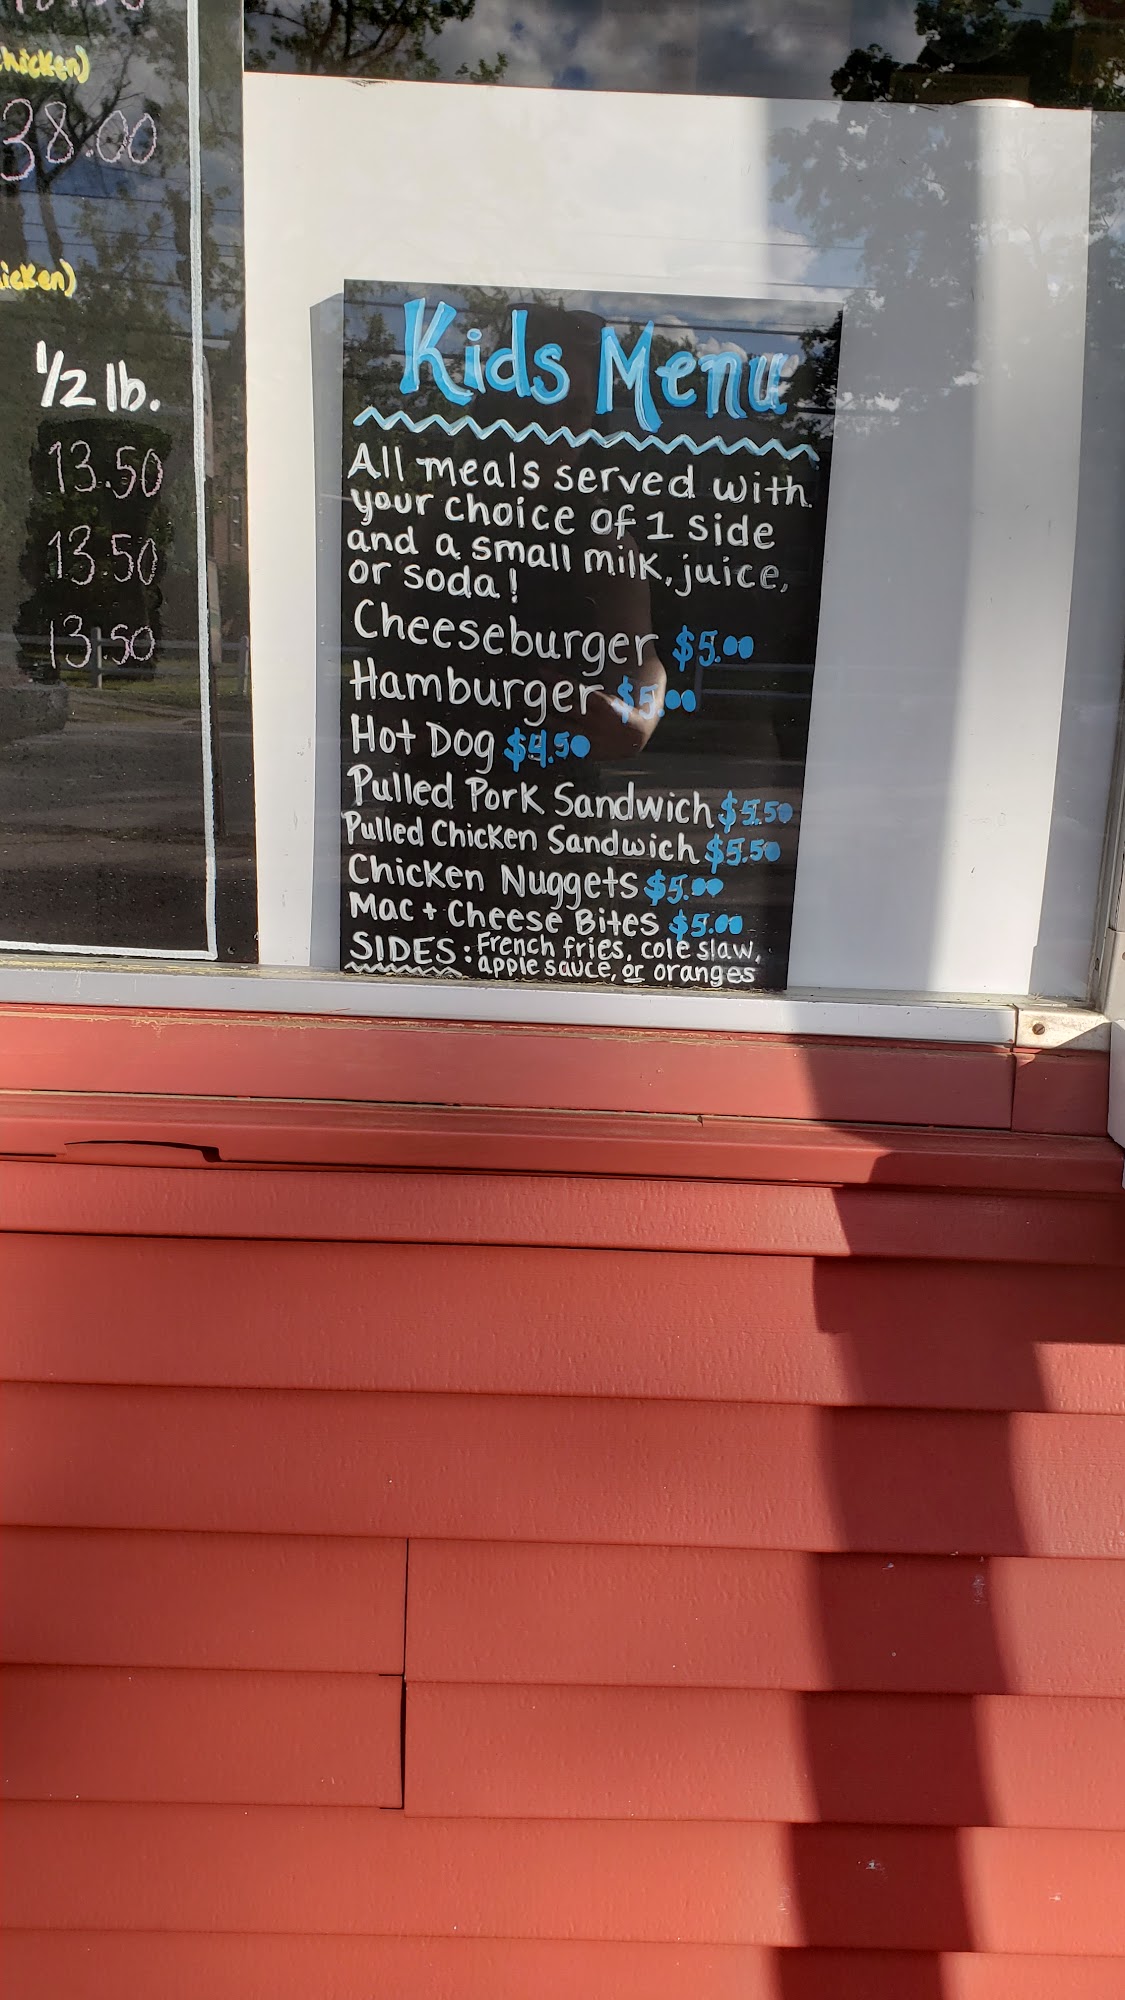 38.00
1/2 lb.
13.50
13.50
13.50
Kids Menu
All meals served with
your choice of 1 side
and a small milk, juice,
or soda!
Cheeseburger $5.00
Hamburger $5.00
Hot Dog $4.50
Pulled Pork Sandwich $5.50
Pulled Chicken Sandwich $5.50
Chicken Nuggets $5.00
Mac + Cheese Bites $5.00
SIDES: French fries, cole slaw,
apple sauce, or oranges